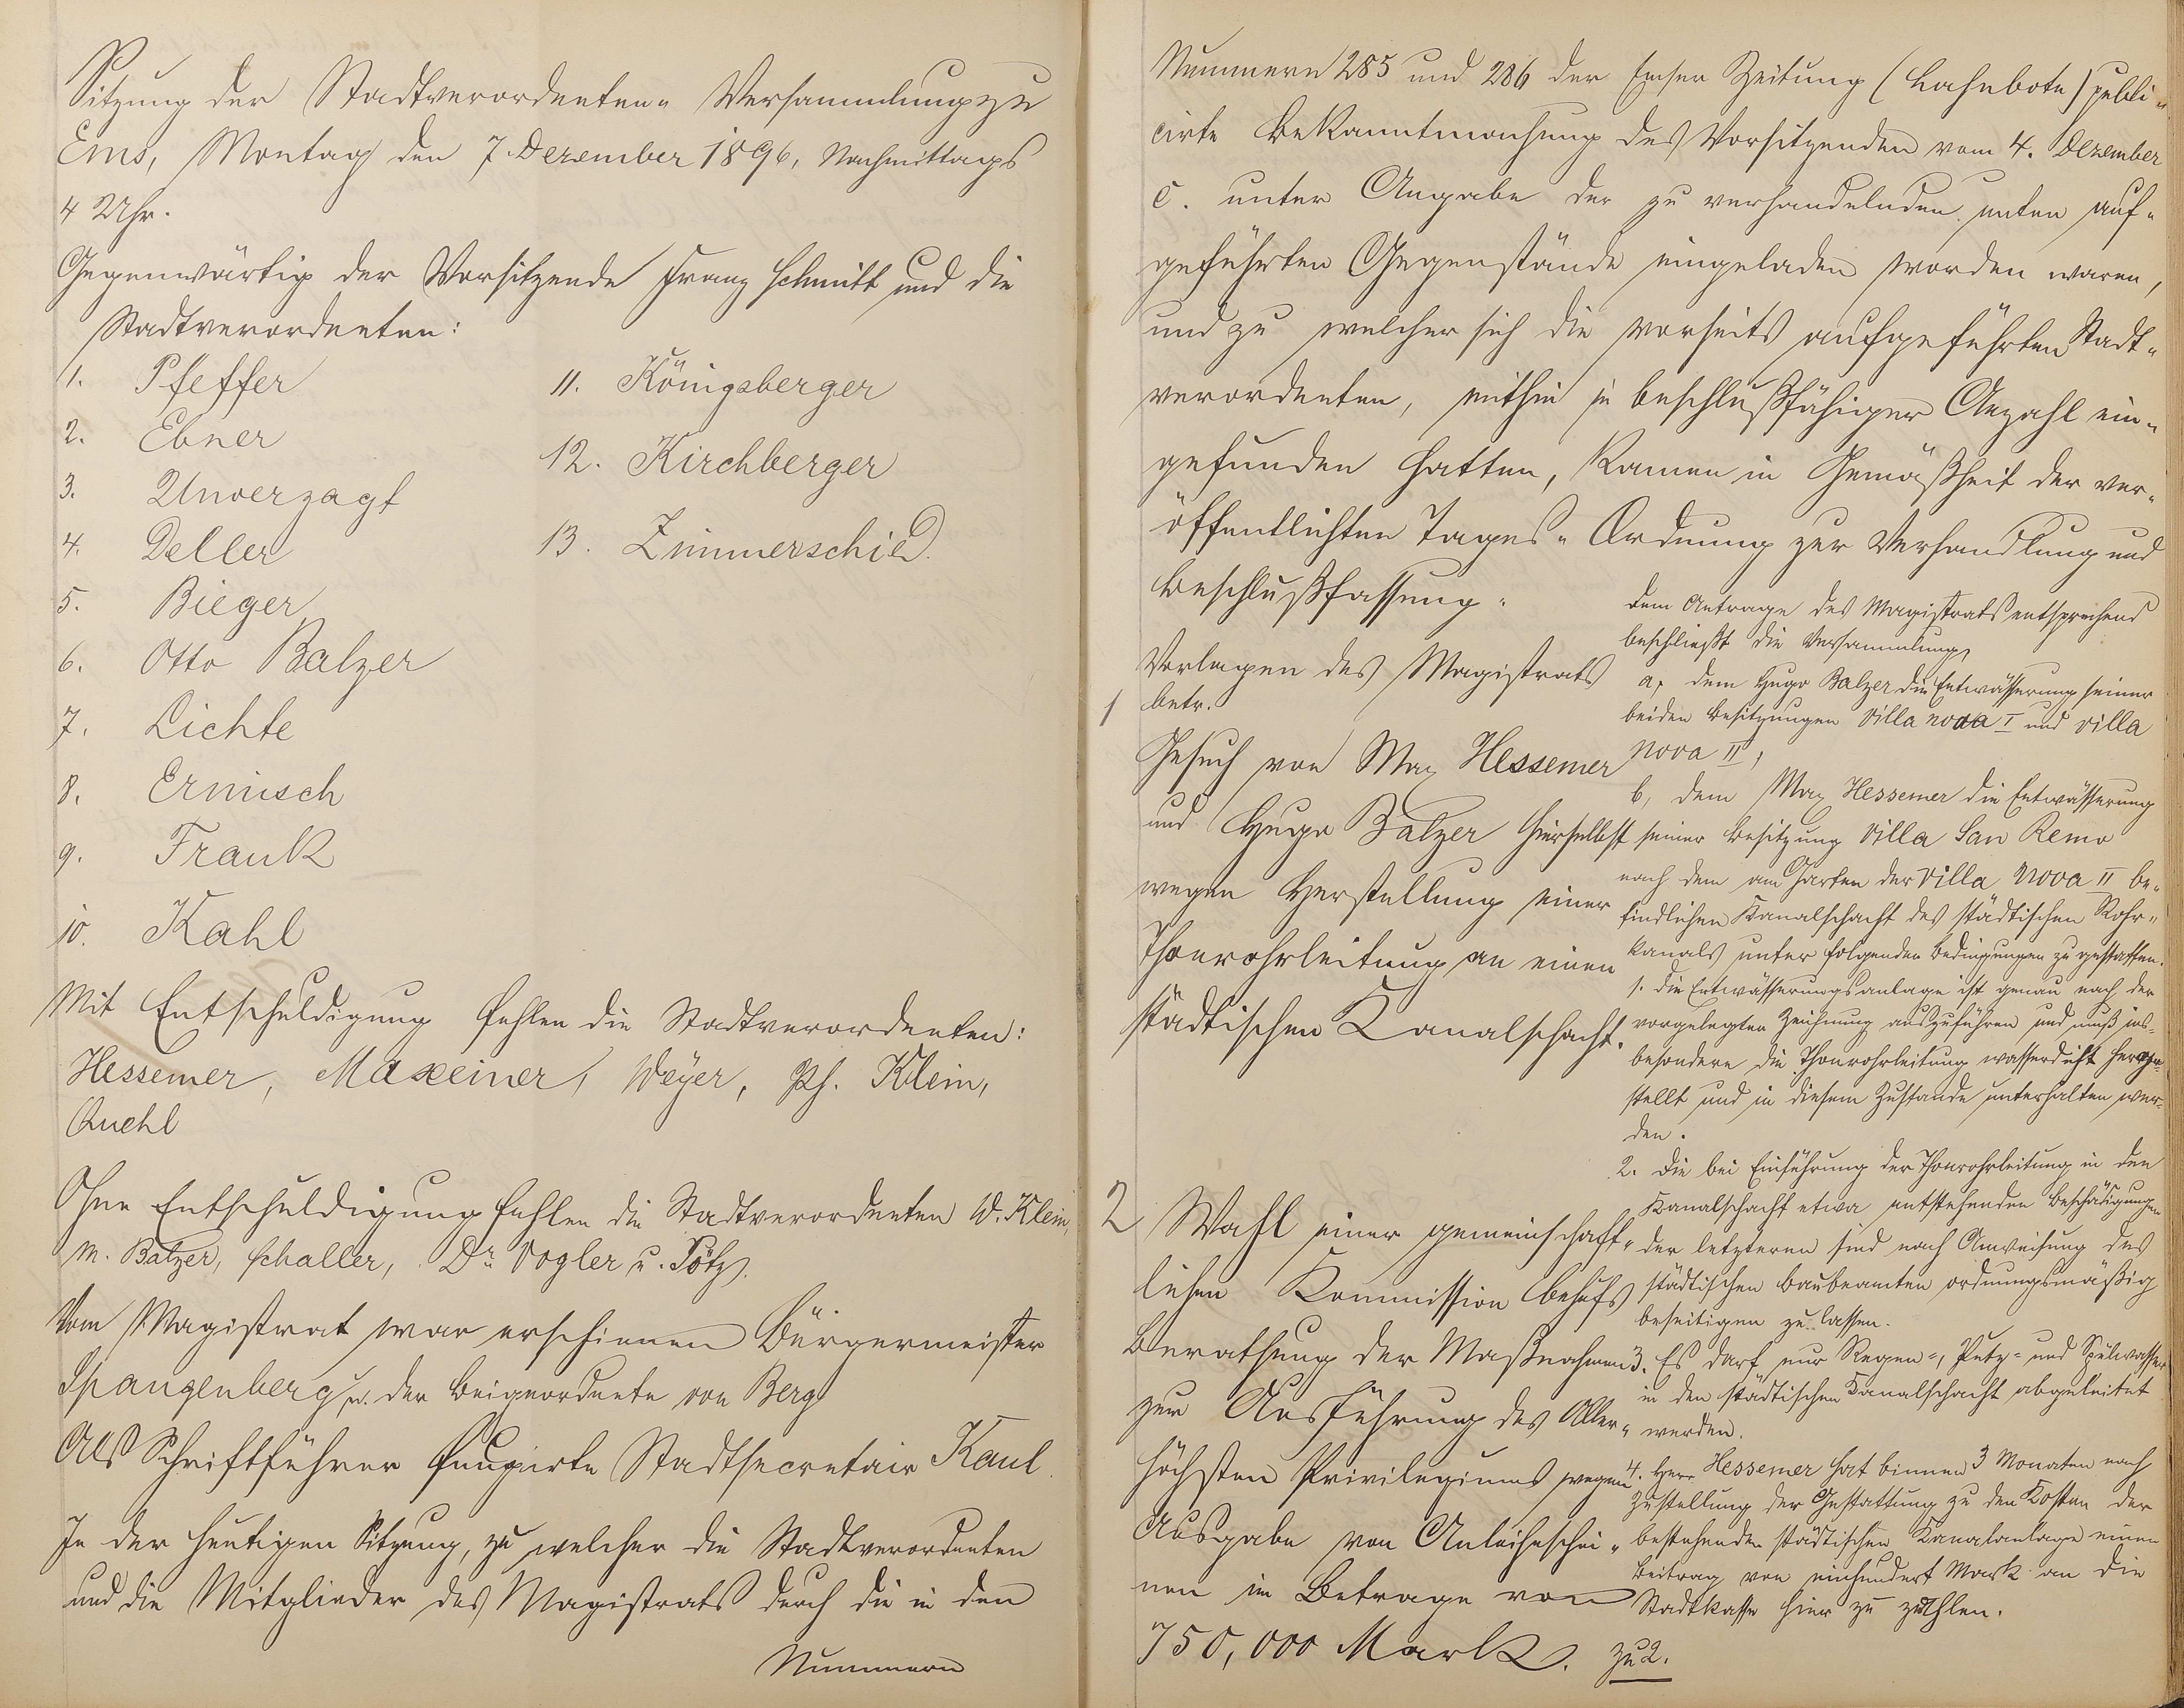 Sitzung der Stadtverordneten-Versammlung zu
Ems, Montag den 7. Dezember 1896, Nachmittags
4 Uhr.
Gegenwärtig der Vorsitzende Franz Schmitt und die
Stadtverordneten:
1. Pfeffer
2. Ebner
3. Unverzagt
4. Deller
5. Bieger
6. Otto Balzer
7. Lichte
8. Ermisch
9. Frank
10. Kahl
11. Königsberger
12. Kirchberger
13. Zimmerschied.
Mit Entschuldigung fehlen die Stadtverordneten:
Hessemer, Maxeiner, Weyer, Ph. Klein,
Quehl
Ohne Entschuldigung fehlen die Stadtverordneten W. Klein,
M. Balzer, Schaller, Dr. Vogler u. Pötz.
Vom Magistrat war erschienen Bürgermeister
Spangenberg u. der Beigeordnete von Berg
Als Schriftführer fungirte Stadtsecretair Kaul.
In der heutigen Sitzung, zu welcher die Stadtverordneten
und die Mitglieder des Magistrats durch die in den
Nummern
Nummern 285 und 286 der Emser Zeitung (Lahnbote) publi-
cirte Bekanntmachung des Vorsitzenden vom 4. Dezember
c. unter Angabe der zu verhandelnden unten auf-
geführten Gegenstände eingeladen worden waren,
und zu welcher sich die vorseits aufgeführten Stadt-
verordneten, mithin in beschlußfähiger Anzahl ein-
gefunden hatten, kamen in Gemäßheit der ver-
öffentlichten Tages-Ordnung zur Verhandlung und
Beschlußfassung:
Vorlagen des Magistrats
1 betr.
Gesuch von Max Hessemer
und Hugo Balzer hierselbst
wegen Herstellung einer
Thonrohrleitung an einen
städtischen Kanalschacht.
2 Wahl einer gemeinschaft-
lichen Kommission behufs
Berathung der Maßnahmen
zur Ausführung des Aller-
höchsten Privilegiums wegen
Ausgabe von Anleiheschei-
nen im Betrage von
750,000 Mark.
Dem Antrage des Magistrats entsprechend
beschließt die Versammlung,
a, dem Hugo Balzer die Entwässerung seiner
beiden Besitzungen Villa nova I und Villa
nova II,
b, dem Max Hessemer die Entwässerung
seiner Besitzung Villa San Remo
nach dem am Garten der Villa Nova II be-
findlichen Kanalschacht des städtischen Rohr-
kanals unter folgenden Bedingungen zu gestatten.
1. Die Entwässerungsanlage ist genau nach der
vorgelegten Zeichnung auszuführen und muß ins-
besondere die Thonrohrleitung wasserdicht herge-
stellt und in diesem Zustande unterhalten wer-
den.
2. Die bei Einführung der Thonrohrleitung in den
Kanalschacht etwa entstehenden Beschädigungen
der letzteren sind nach Anweisung des
städtischen Baubeamten ordnungsmäßig
beseitigen zu lassen.
3. Es darf nur Regen-, Putz- und Spülwasser
in den städtischen Kanalschacht abgeleitet
werden.
4. Herr Hessemer hat binnen 3 Monaten nach
Zustellung der Gestattung zu den Kosten der
bestehenden städtischen Kanalanlage einen
Beitrag von einhundert Mark an die
Stadtkasse hier zu zahlen.
Zu 2.